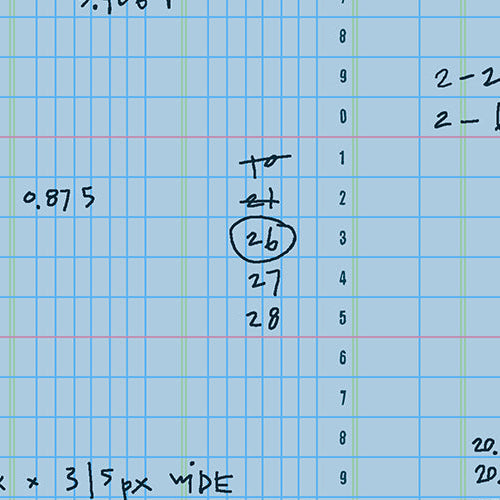 7
8
9 2-2
0 2-1
1 10
0.875 21 2
26 3
27 4
28 5
6
7
8 20.
x 315px WIDE 9 20.